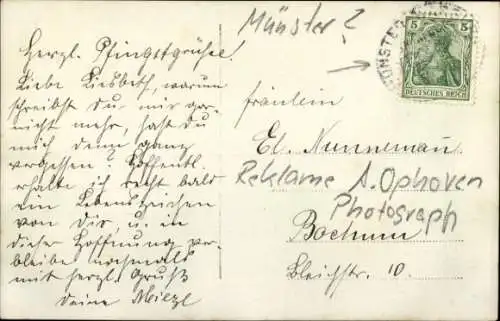 Herzl. Pfingstgrüße!
Liebe Liesbeth, warum
schreibst Du mir gar
nicht mehr, hast du
mich denn ganz
vergessen? Hoffentl.
erhalte ich recht bald
ein Lebenszeichen
von Dir, u. in
dieser Hoffnung ver-
bleibe nochmals
mit herzl. Gruß
Deine Miezl
Münster?
5 5
DEUTSCHES REICH
Fräulein
El. Nunnemann
Reklame A. Ophoven
Photograph
Bochum
Bleichstr. 10.